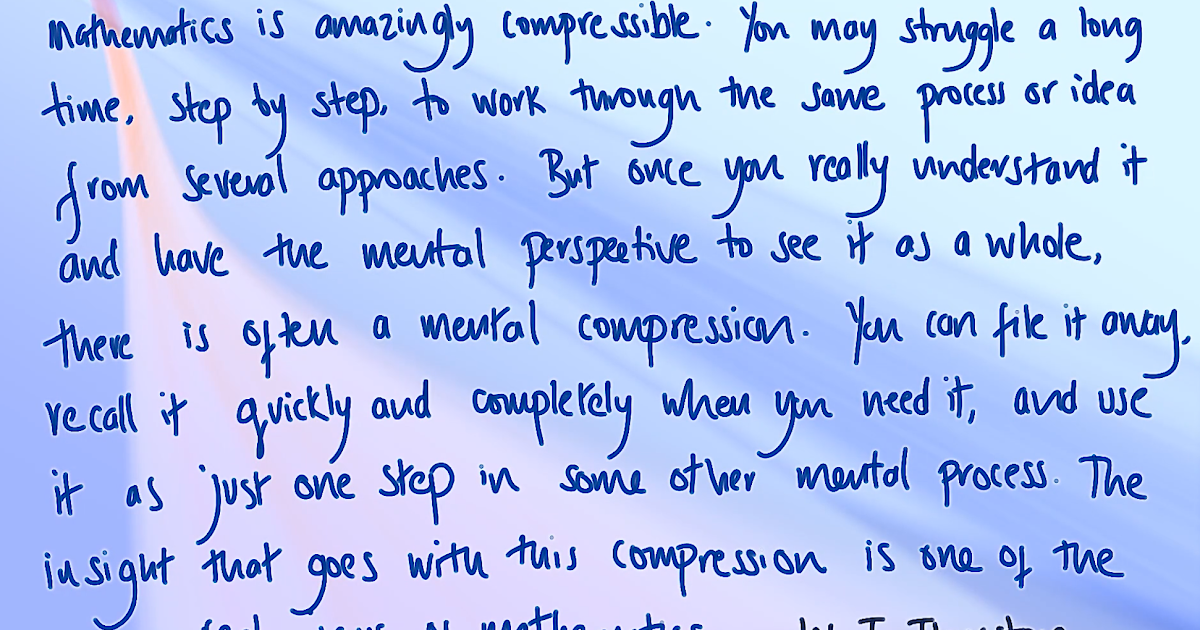 mathematics is amazingly compressible. You may struggle a long
time, step by step, to work through the same process or idea
from several approaches. But once you really understand it
and have the mental perspective to see it as a whole,
there is often a mental compression. You can file it away,
recall it quickly and completely when you need it, and use
it as just one step in some other mental process. The
insight that goes with this compression is one of the
mathematics